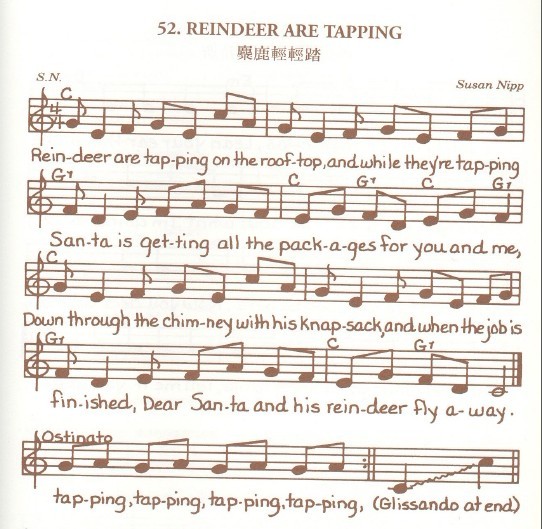 52. REINDEER ARE TAPPING
麋鹿輕輕踏
S.N.
Susan Nipp
C
4
4
Rein-deer are tap-ping on the roof-top, and while they're tap-ping
G7 C G7 C G7
San-ta is get-ting all the pack-a-ges for you and me,
C
Down through the chim-ney with his knap-sack, and when the job is
G7 C G7
fin-ished, Dear San-ta and his rein-deer fly a-way.
Ostinato
tap-ping, tap-ping, tap-ping, tap-ping, (Glissando at end)